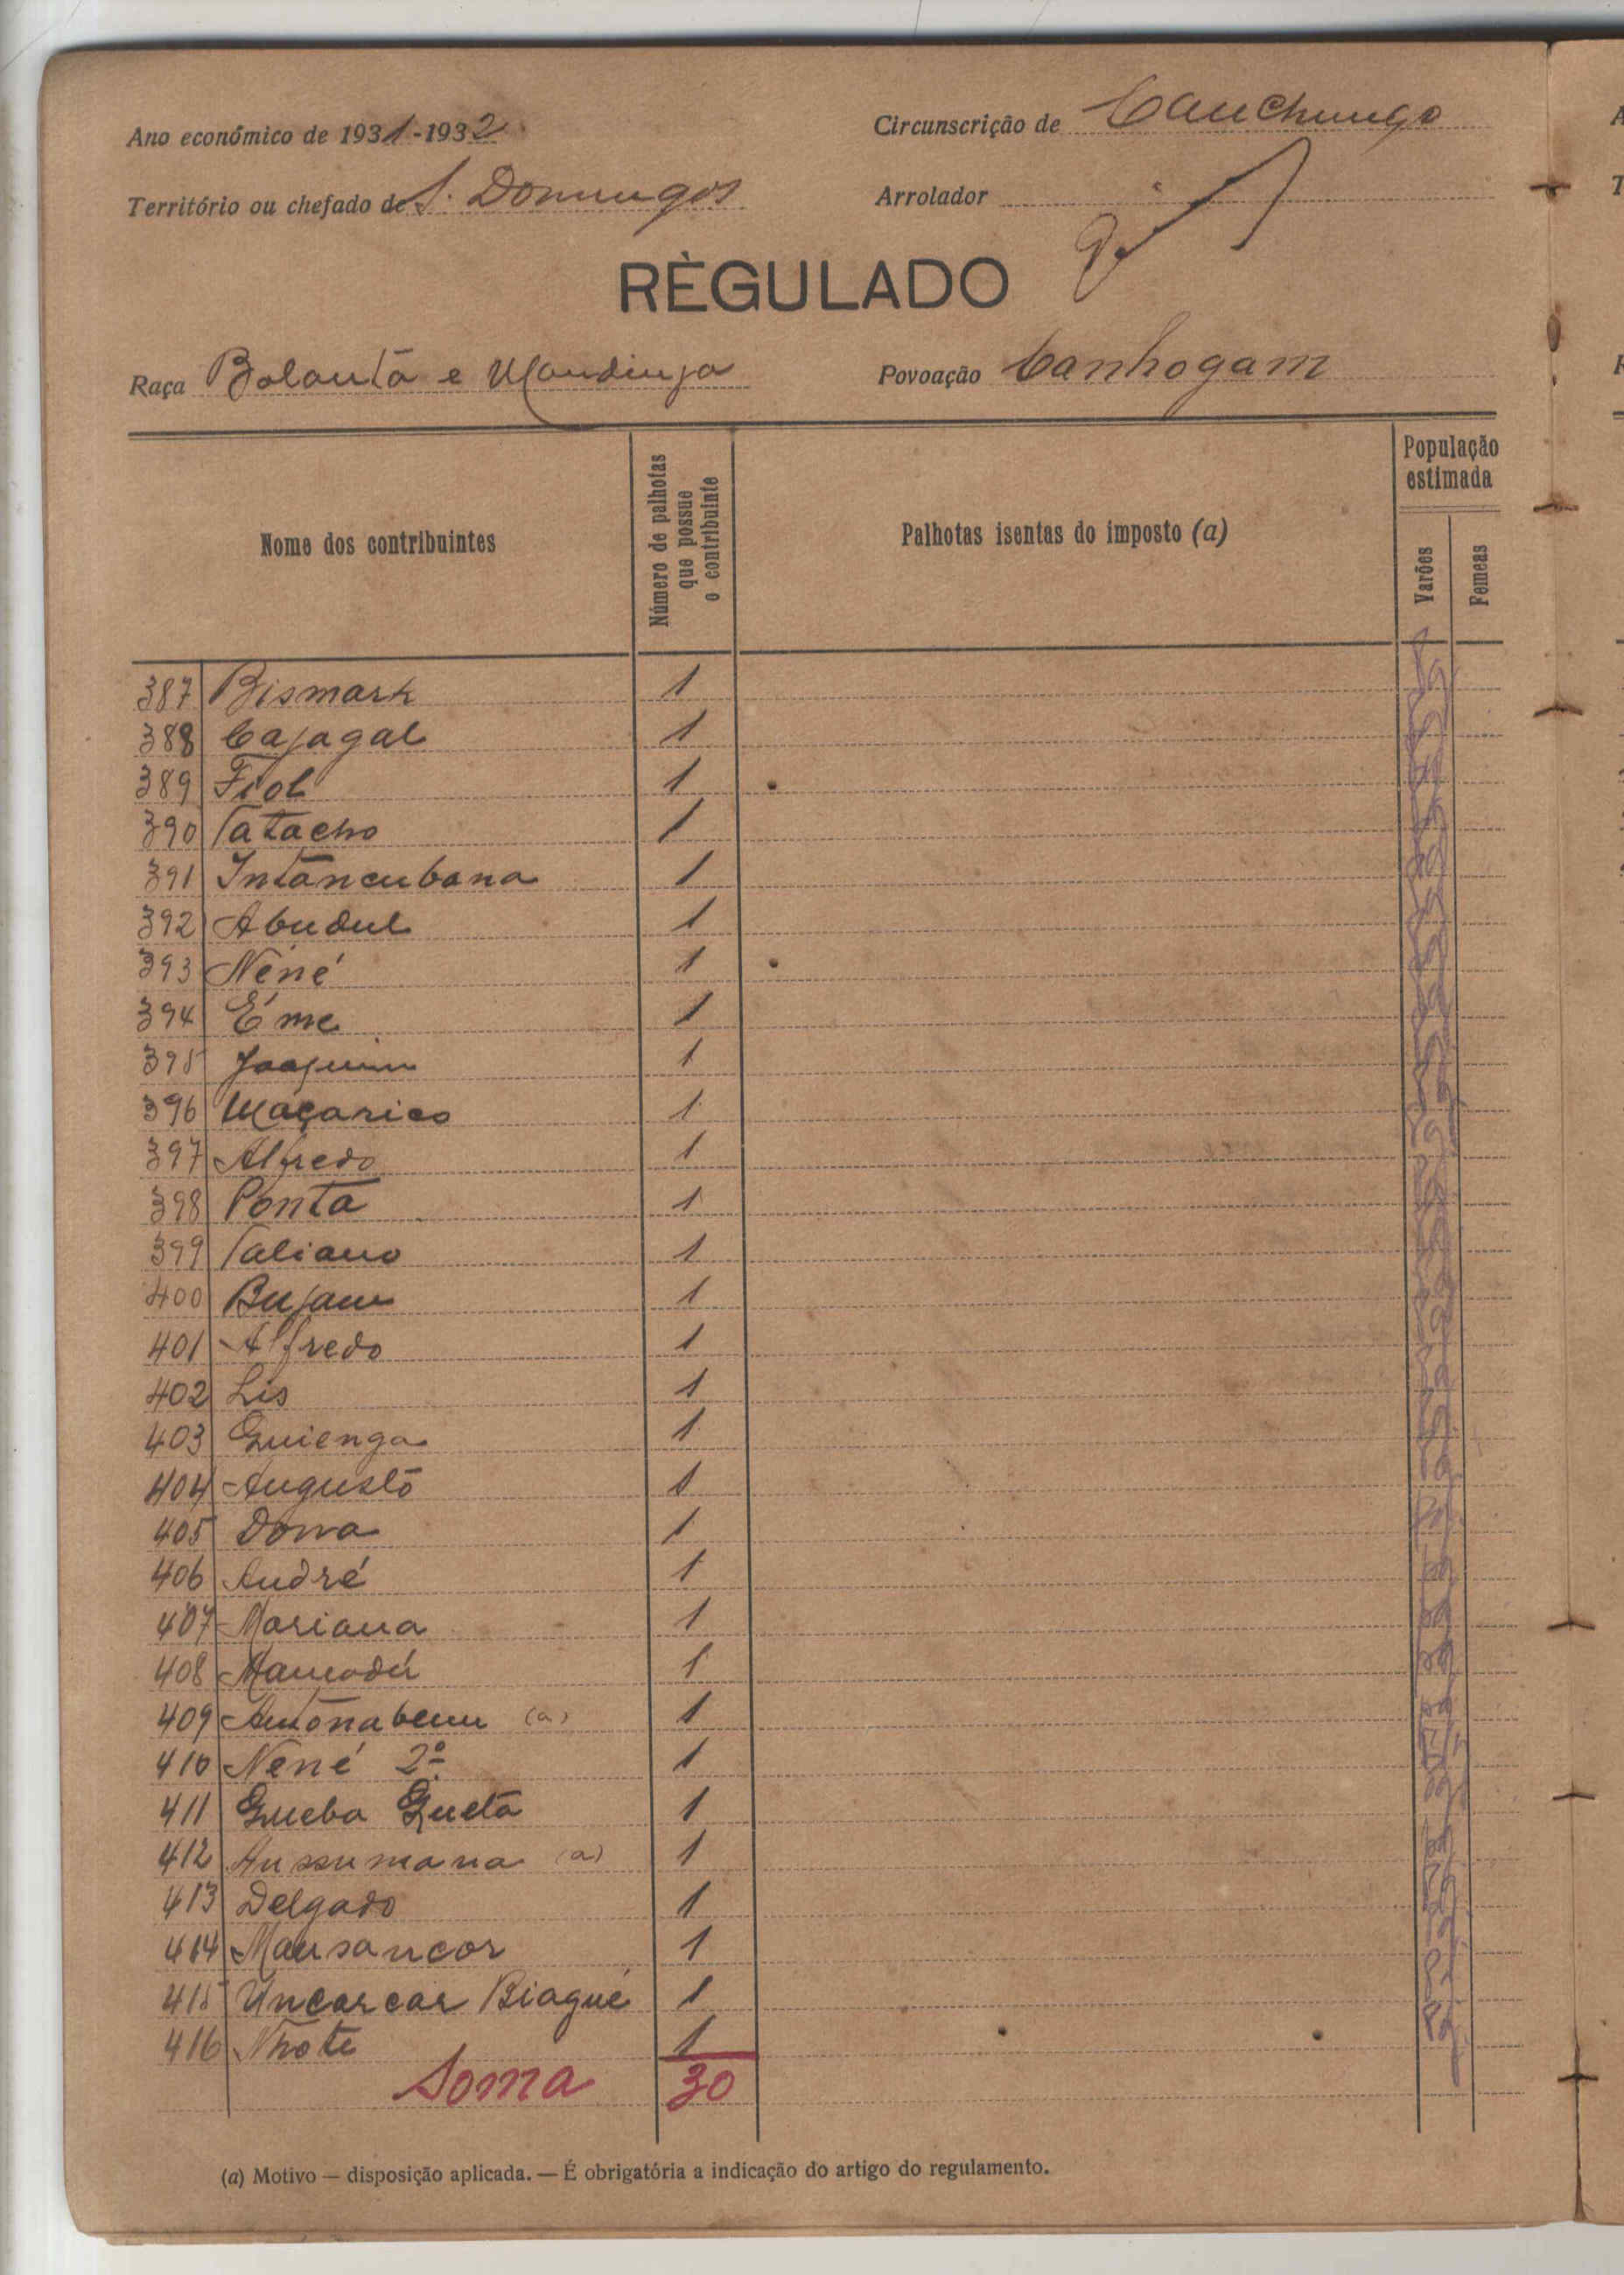 Ano económico de 1931-1932
Circunscrição de Canchungo
Território ou chefado de S. Domingos
Arrolador
RÈGULADO
Raça Balanta e Mandinga
Povoação Canhogam
Nome dos contribuintes
Número de palhotas que possue o contribuinte
Palhotas isentas do imposto (a)
População estimada
Varões
Femeas
387 Bismark 1
388 Cajagal 1
389 Fiol 1
390 Tatacho 1
391 Intancubana 1
392 Abudul 1
393 Néné 1
394 Éme 1
395 Joaquim 1
396 Maçarico 1
397 Alfredo 1
398 Ponta 1
399 Taliano 1
400 Bujam 1
401 Alfredo 1
402 Lis 1
403 Quienga 1
404 Augusto 1
405 Dona 1
406 André 1
407 Mariana 1
408 Mamadú 1
409 (a) 1
410 Nené 2º 1
411 Queba Queta 1
412 Aussumana (a) 1
413 Delgado 1
414 Mansancor 1
415 Uncarcar Biagué 1
416 Nhote 1
Soma 30
(a) Motivo — disposição aplicada. — É obrigatória a indicação do artigo do regulamento.